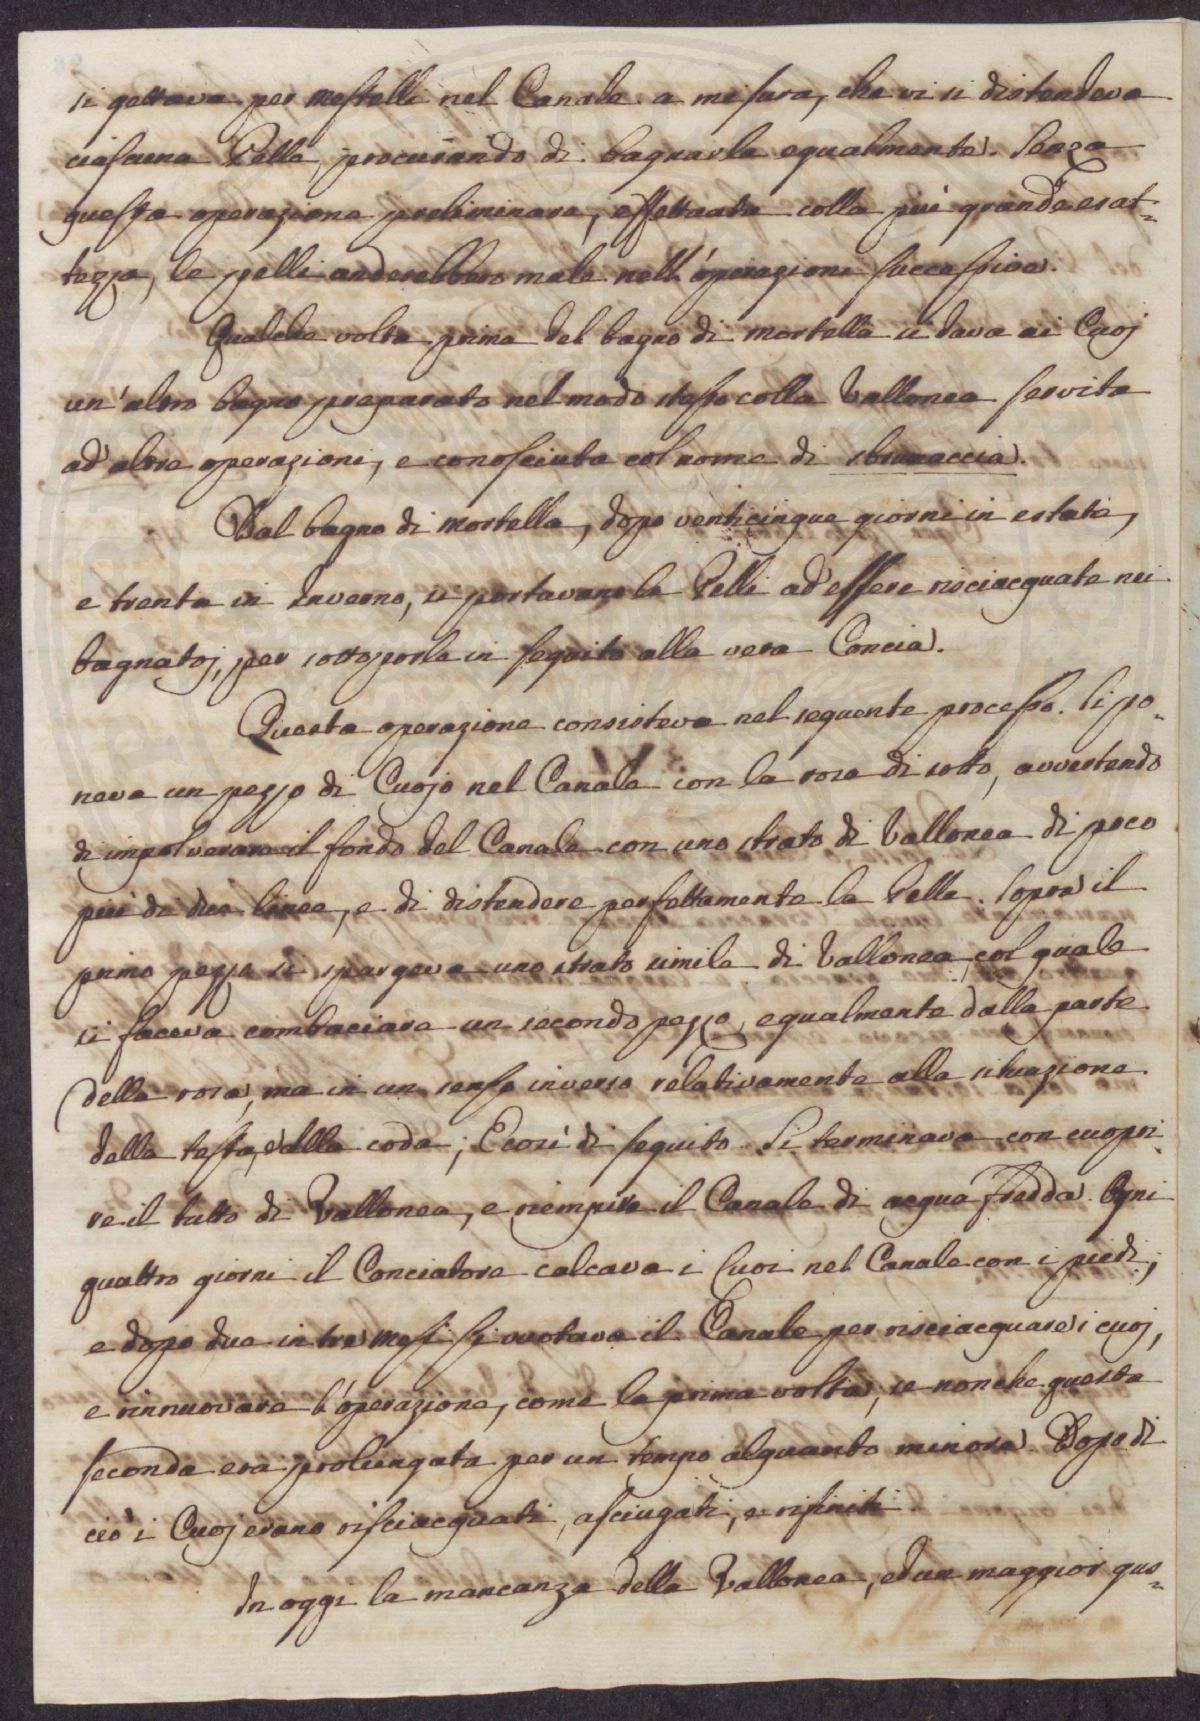 si gettava per mestelli nel Canale a misura, che vi si distendeva
ciascuna Pelle, procurando di bagnarla egualmente. Senza
questa operazione preliminare, effettuata colla più grande esat-
tezza, le pelli anderebbero male nell'operazione successiva.
Qualche volta prima del bagno di mortella si dava ai Cuoj
un'altro bagno preparato nel modo stesso colla Vallonea servita
ad altre operazioni, e conosciuta col nome di sbrumaccia.
Dal bagno di mortella, dopo venticinque giorni in estate,
e trenta in inverno, si portavano le Pelli ad essere risciacquate nei
bagnatoj, per sottoporle in seguito alla vera Concia.
Questa operazione consisteva nel seguente processo. Si po-
neva un pezzo di Cuojo nel Canale con la rosa di sotto, avvertendo
di impolverare il fondo del Canale con uno strato di Vallonea di poco
più di due linee, e di distendere perfettamente la Pelle. Sopra il
primo pezzo si spargeva uno strato simile di Vallonea, col quale
si faceva combaciare un secondo pezzo, egualmente dalla parte
della rosa, ma in un senso inverso relativamente alla situazione
della testa, e della coda; E così di seguito. Si terminava con cuopri-
re il tutto di Vallonea, e riempire il Canale di acqua fredda. Ogni
quattro giorni il Conciatore calcava i Cuoi nel Canale con i piedi;
e dopo due in tre mesi si vuotava il Canale per risciacquare i cuoj,
e rinnuovare l'operazione, come la prima volta, se non che questa
seconda era prolungata per un tempo alquanto minore. Dopo di
ciò i Cuoj erano risciacquati, asciugati, e rifiniti.
In oggi la mancanza della Vallonea, ed un maggior gus-